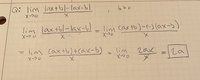 Q: lim x→0 |ax+b|-|ax-b| / x , b>0
lim x→0 |ax+b|-|ax-b| / x = lim x→0 (ax+b)-(-)(ax-b) / x
= lim x→0 (ax+b)+(ax-b) / x = lim x→0 2ax / x = 2a